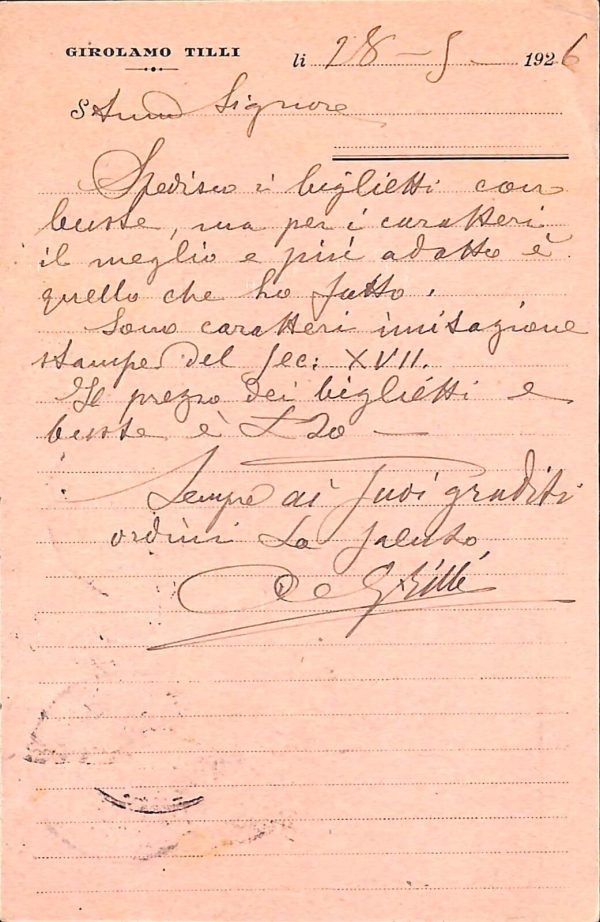 GIROLAMO TILLI
li 28 - 5 - 1926
Signore
Spedisco i biglietti con
buste, ma per i caratteri
il meglio e più adatto è
quello che ho fatto.
Sono caratteri imitazione
stampe del sec: XVII.
Il prezzo dei biglietti e
buste è L 20 —
Sempre ai Suoi graditi
ordini La saluto
G Tilli